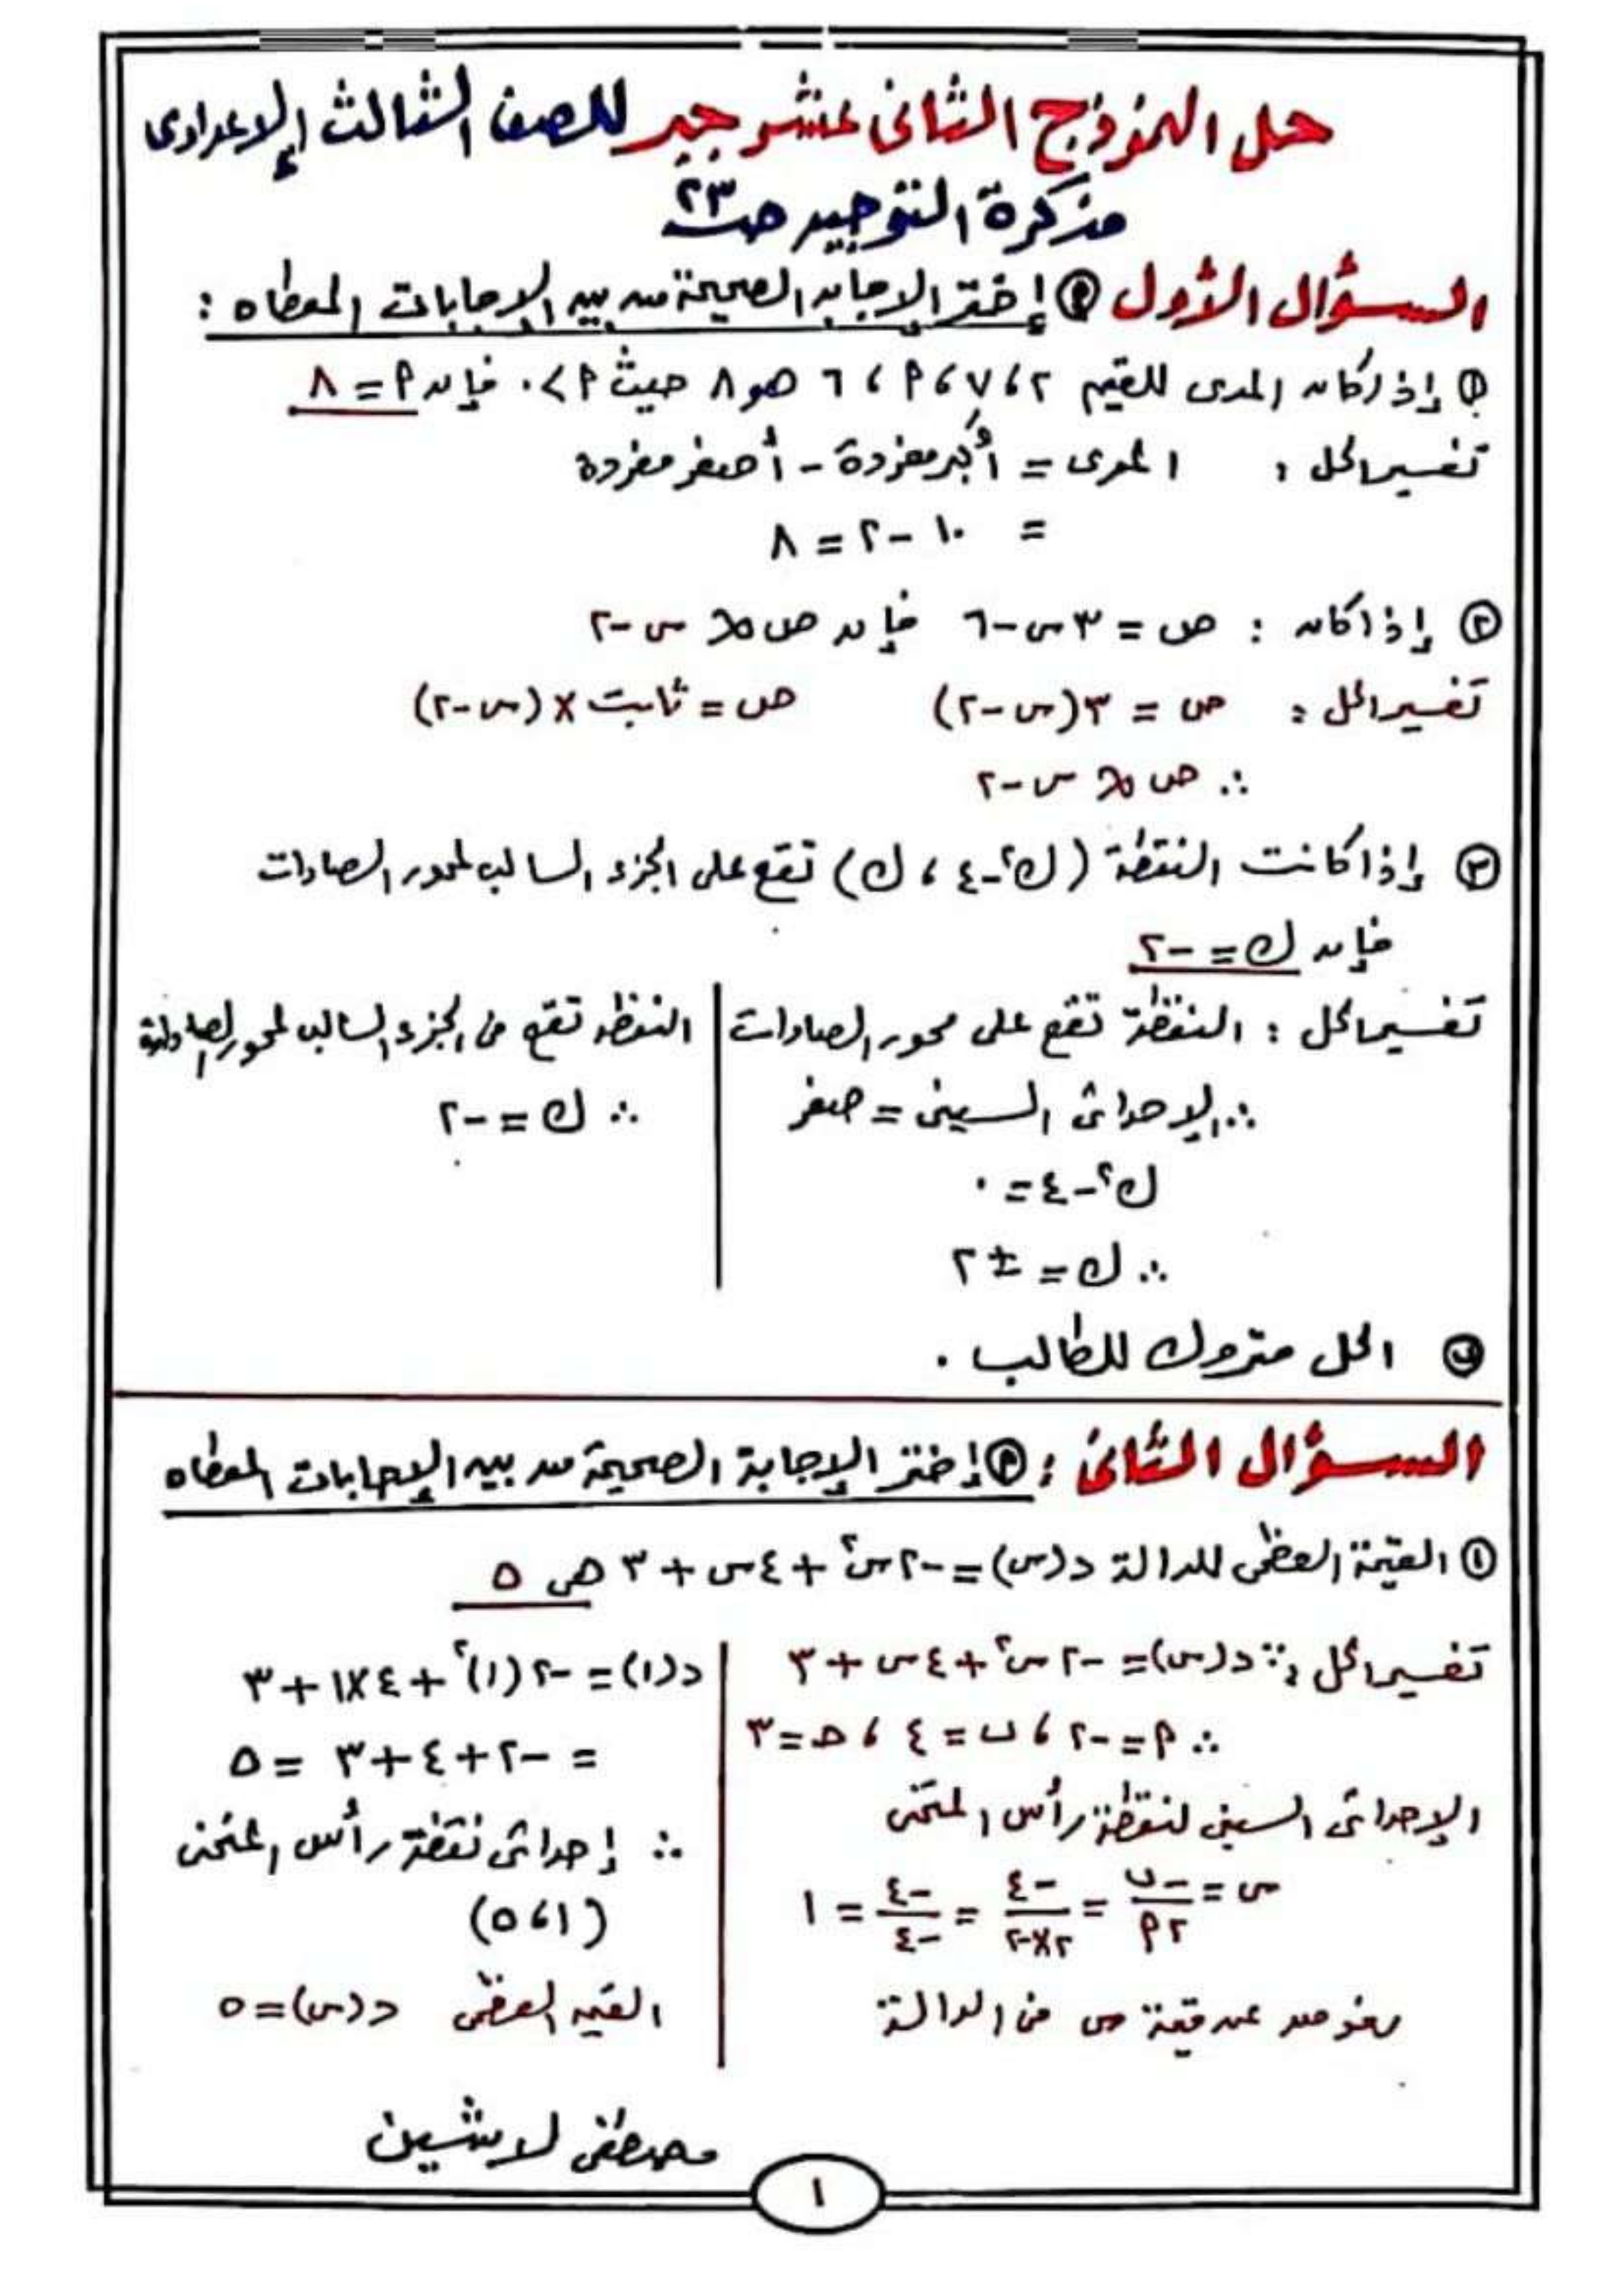 حل النموذج الثانى عشر جبر للصف الثالث الإعدادى
مذكرة التوجيه صـ ٢٣
السؤال الأول (أ) إختر الإجابه الصحيحة من بين الإجابات المعطاه :
(١) إذا كان المدى للقيم ٢ ، ٧ ، أ ، ٦ هو ٨ حيث أ > ٠ فإن أ = ٨
تفسير الحل : المدى = أكبر مفردة - أصغر مفردة
= ١٠ - ٢ = ٨
(٢) إذا كان : ص = ٣س - ٦ فإن ص ∝ س - ٢
تفسير الحل : ص = ٣(س - ٢) ص = ثابت × (س - ٢)
∴ ص ∝ س - ٢
(٣) إذا كانت النقطة (ك² - ٤ ، ك) تقع على الجزء السالب لمحور الصادات
فإن ك = -٢
تفسير الحل : النقطة تقع على محور الصادات
∴ الإحداثى السينى = صفر
ك² - ٤ = ٠
∴ ك = ± ٢
النقطه تقع فى الجزء السالب لمحور الصادات
∴ ك = -٢
(ب) الحل متروك للطالب .
السؤال الثانى : (أ) إختر الإجابة الصحيحة من بين الإجابات المعطاه
(١) القيمة العظمى للدالة د(س) = -٢س² + ٤س + ٣ هى ٥
تفسير الحل : ∵ د(س) = -٢س² + ٤س + ٣
∴ أ = -٢ ، ب = ٤ ، حـ = ٣
الإحداثى السينى لنقطة رأس المنحنى
س = -ب/٢أ = -٤/٢×-٢ = -٤/-٤ = ١
بعوض عن قيمة س فى الدالة
د(١) = -٢(١)² + ٤×١ + ٣
= -٢ + ٤ + ٣ = ٥
∴ إحداثى نقطة رأس المنحنى
(١ ، ٥)
القيمه العظمى د(س) = ٥
مصطفى لاشين
١